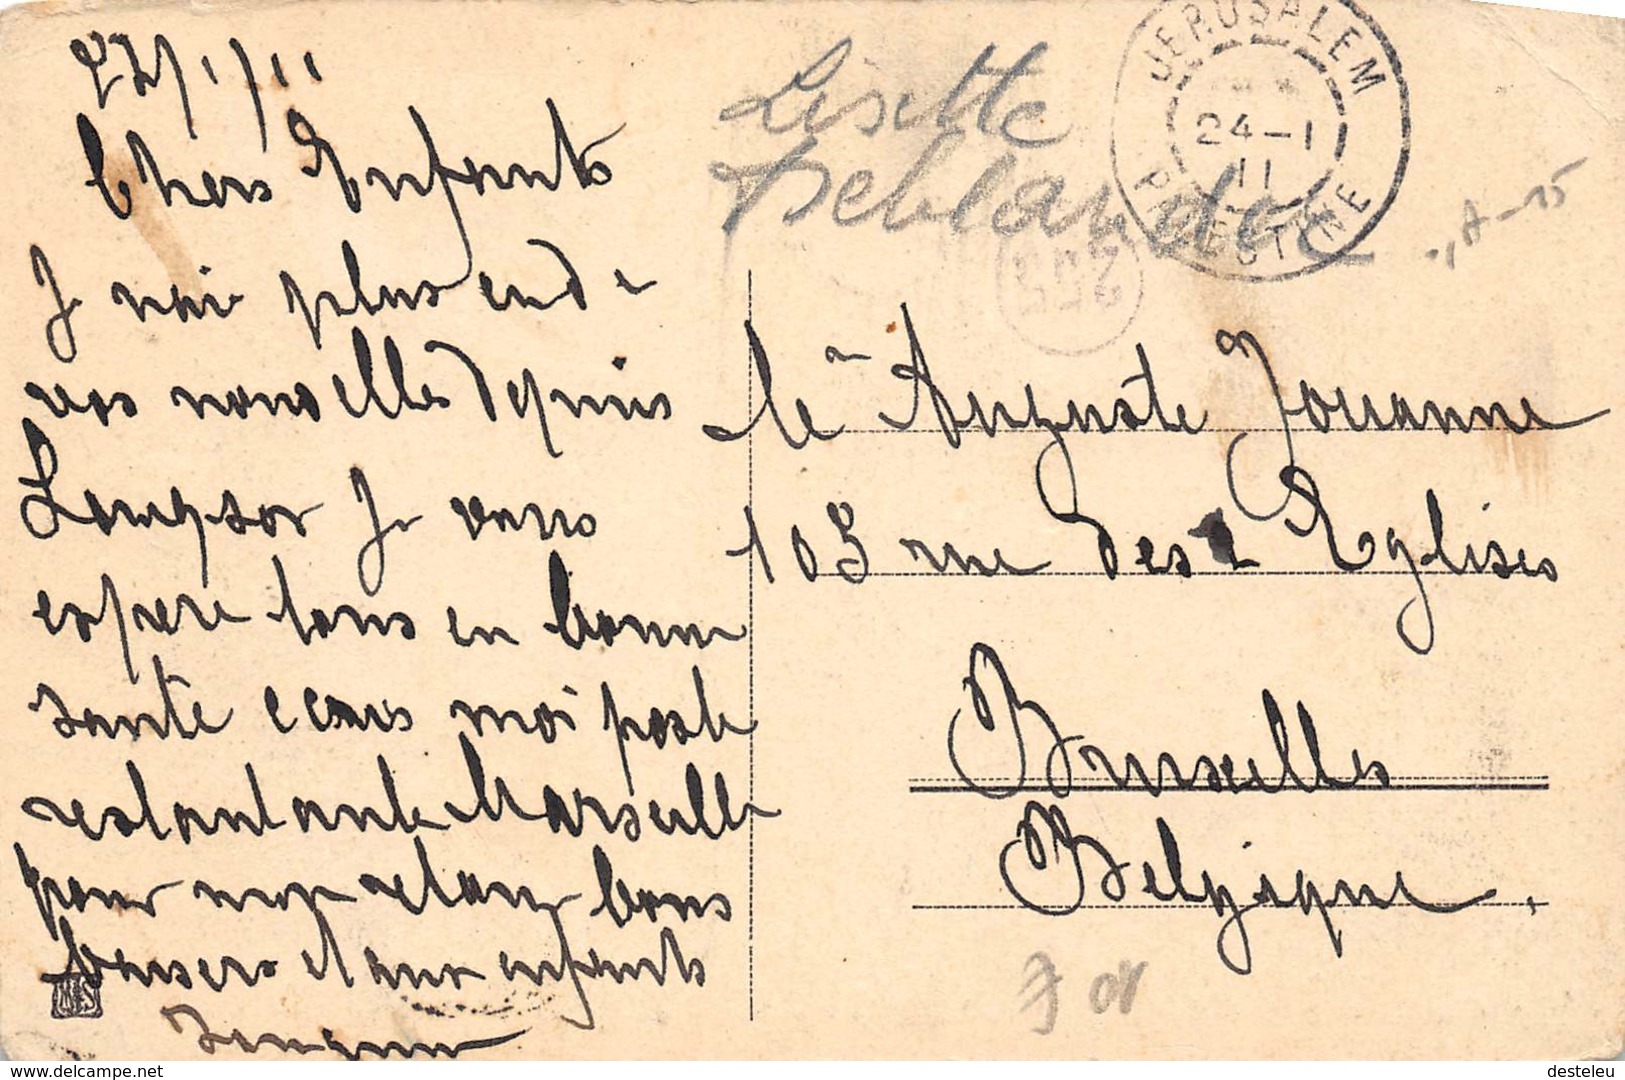 27/1/11
Chers Enfants
Je n'ai plus eu de
vos nouvelles depuis
Longsor Je vous
espere tous en bonne
santé moi poste
restantante Marseille
pour mon retour bons
baisers et aux enfants
Lisette
Deblander
JERUSALEM
24-1
11
PALESTINE
Auguste Jouanne
103 rue des Eglises
Bruxelles
Belgique.
M&S
delcampe.net
desteleu